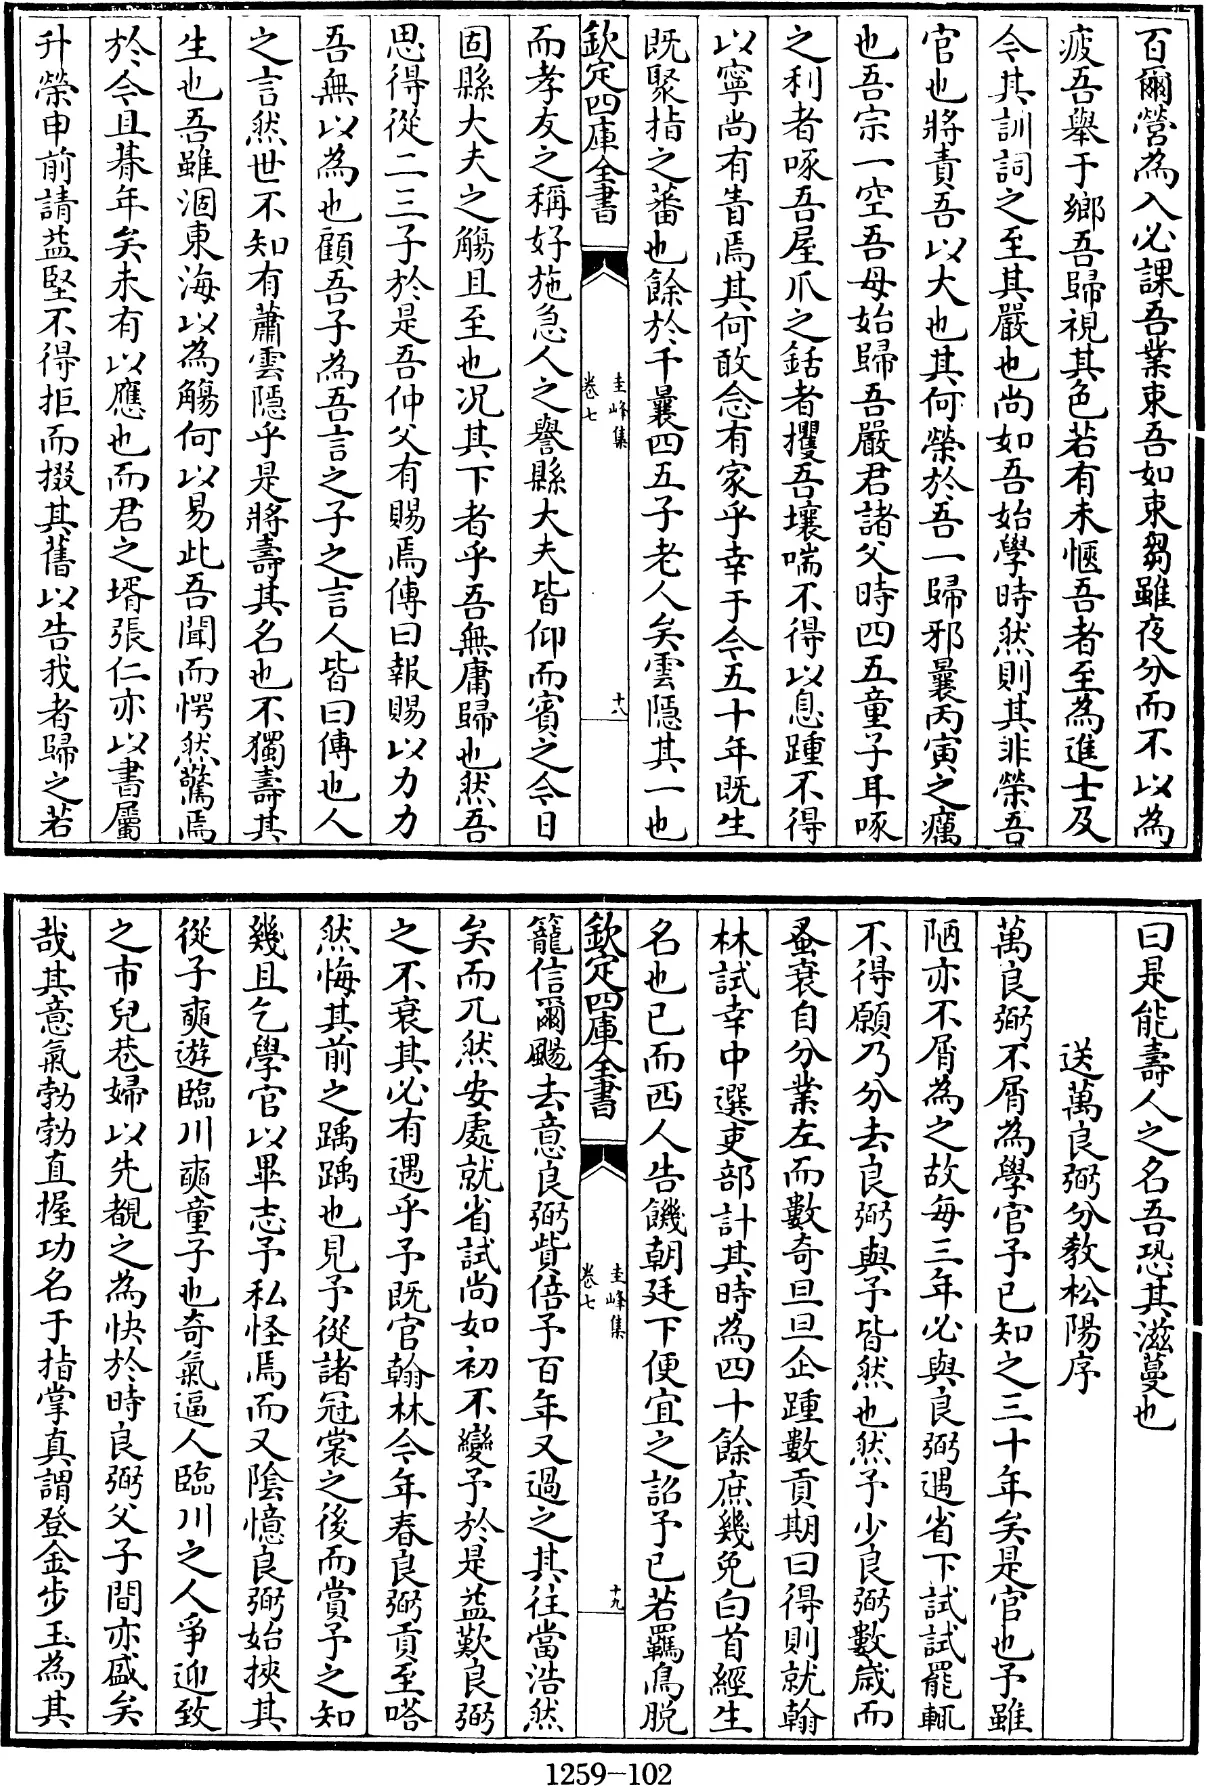 百爾營為入必課吾業束吾如束芻雖夜分而不以為
疲吾舉于鄉吾歸視其色若有未愜吾者至為進士及
今其訓詞之至其嚴也尚如吾始學時然則其非榮吾
官也將責吾以大也其何榮於吾一歸邪曩丙寅之癘
也吾宗一空吾母始歸吾嚴君諸父時四五童子耳啄
之利者啄吾屋爪之銛者攫吾壤喘不得以息踵不得
以寧尚有眚焉其何敢念有家乎幸于今五十年既生
既聚指之蕃也餘於千曩四五子老人矣雲隱其一也
欽定四庫全書
圭峰集
卷七
十八
而孝友之稱好施急人之譽縣大夫皆仰而賓之今日
固縣大夫之觴且至也况其下者乎吾無庸歸也然吾
思得從二三子於是吾仲父有賜焉傳曰報賜以力力
吾無以為也顧吾子為吾言之子之言人皆曰傳也人
之言然世不知有蕭雲隱乎是將壽其名也不獨壽其
生也吾雖涸東海以為觴何以易此吾聞而愕然驚焉
於今且朞年矣未有以應也而君之壻張仁亦以書屬
升榮申前請益堅不得拒而掇其舊以告我者歸之若
曰是能壽人之名吾恐其滋蔓也
送萬良弼分教松陽序
萬良弼不屑為學官予已知之三十年矣是官也予雖
陋亦不屑為之故每三年必與良弼遇省下試試罷輒
不得願乃分去良弼與予皆然也然予少良弼數歲而
蚤衰自分業左而數奇旦旦企踵數貢期曰得則就翰
林試幸中選吏部計其時為四十餘庶幾免白首經生
名也已而西人告饑朝廷下便宜之詔予已若羈鳥脫
欽定四庫全書
圭峰集
卷七
十九
籠信爾颺去意良弼貲倍予百年又過之其往當浩然
矣而兀然安處就省試尚如初不變予於是益歎良弼
之不衰其必有遇乎予既官翰林今年春良弼貢至嗒
然悔其前之踽踽也見予從諸冠裳之後而賞予之知
幾且乞學官以畢志予私怪焉而又陰憶良弼始挾其
從子奭遊臨川奭童子也奇氣逼人臨川之人爭迎致
之市兒巷婦以先覩之為快於時良弼父子間亦盛矣
哉其意氣勃勃直握功名于指掌真謂登金步玉為其
1259-102